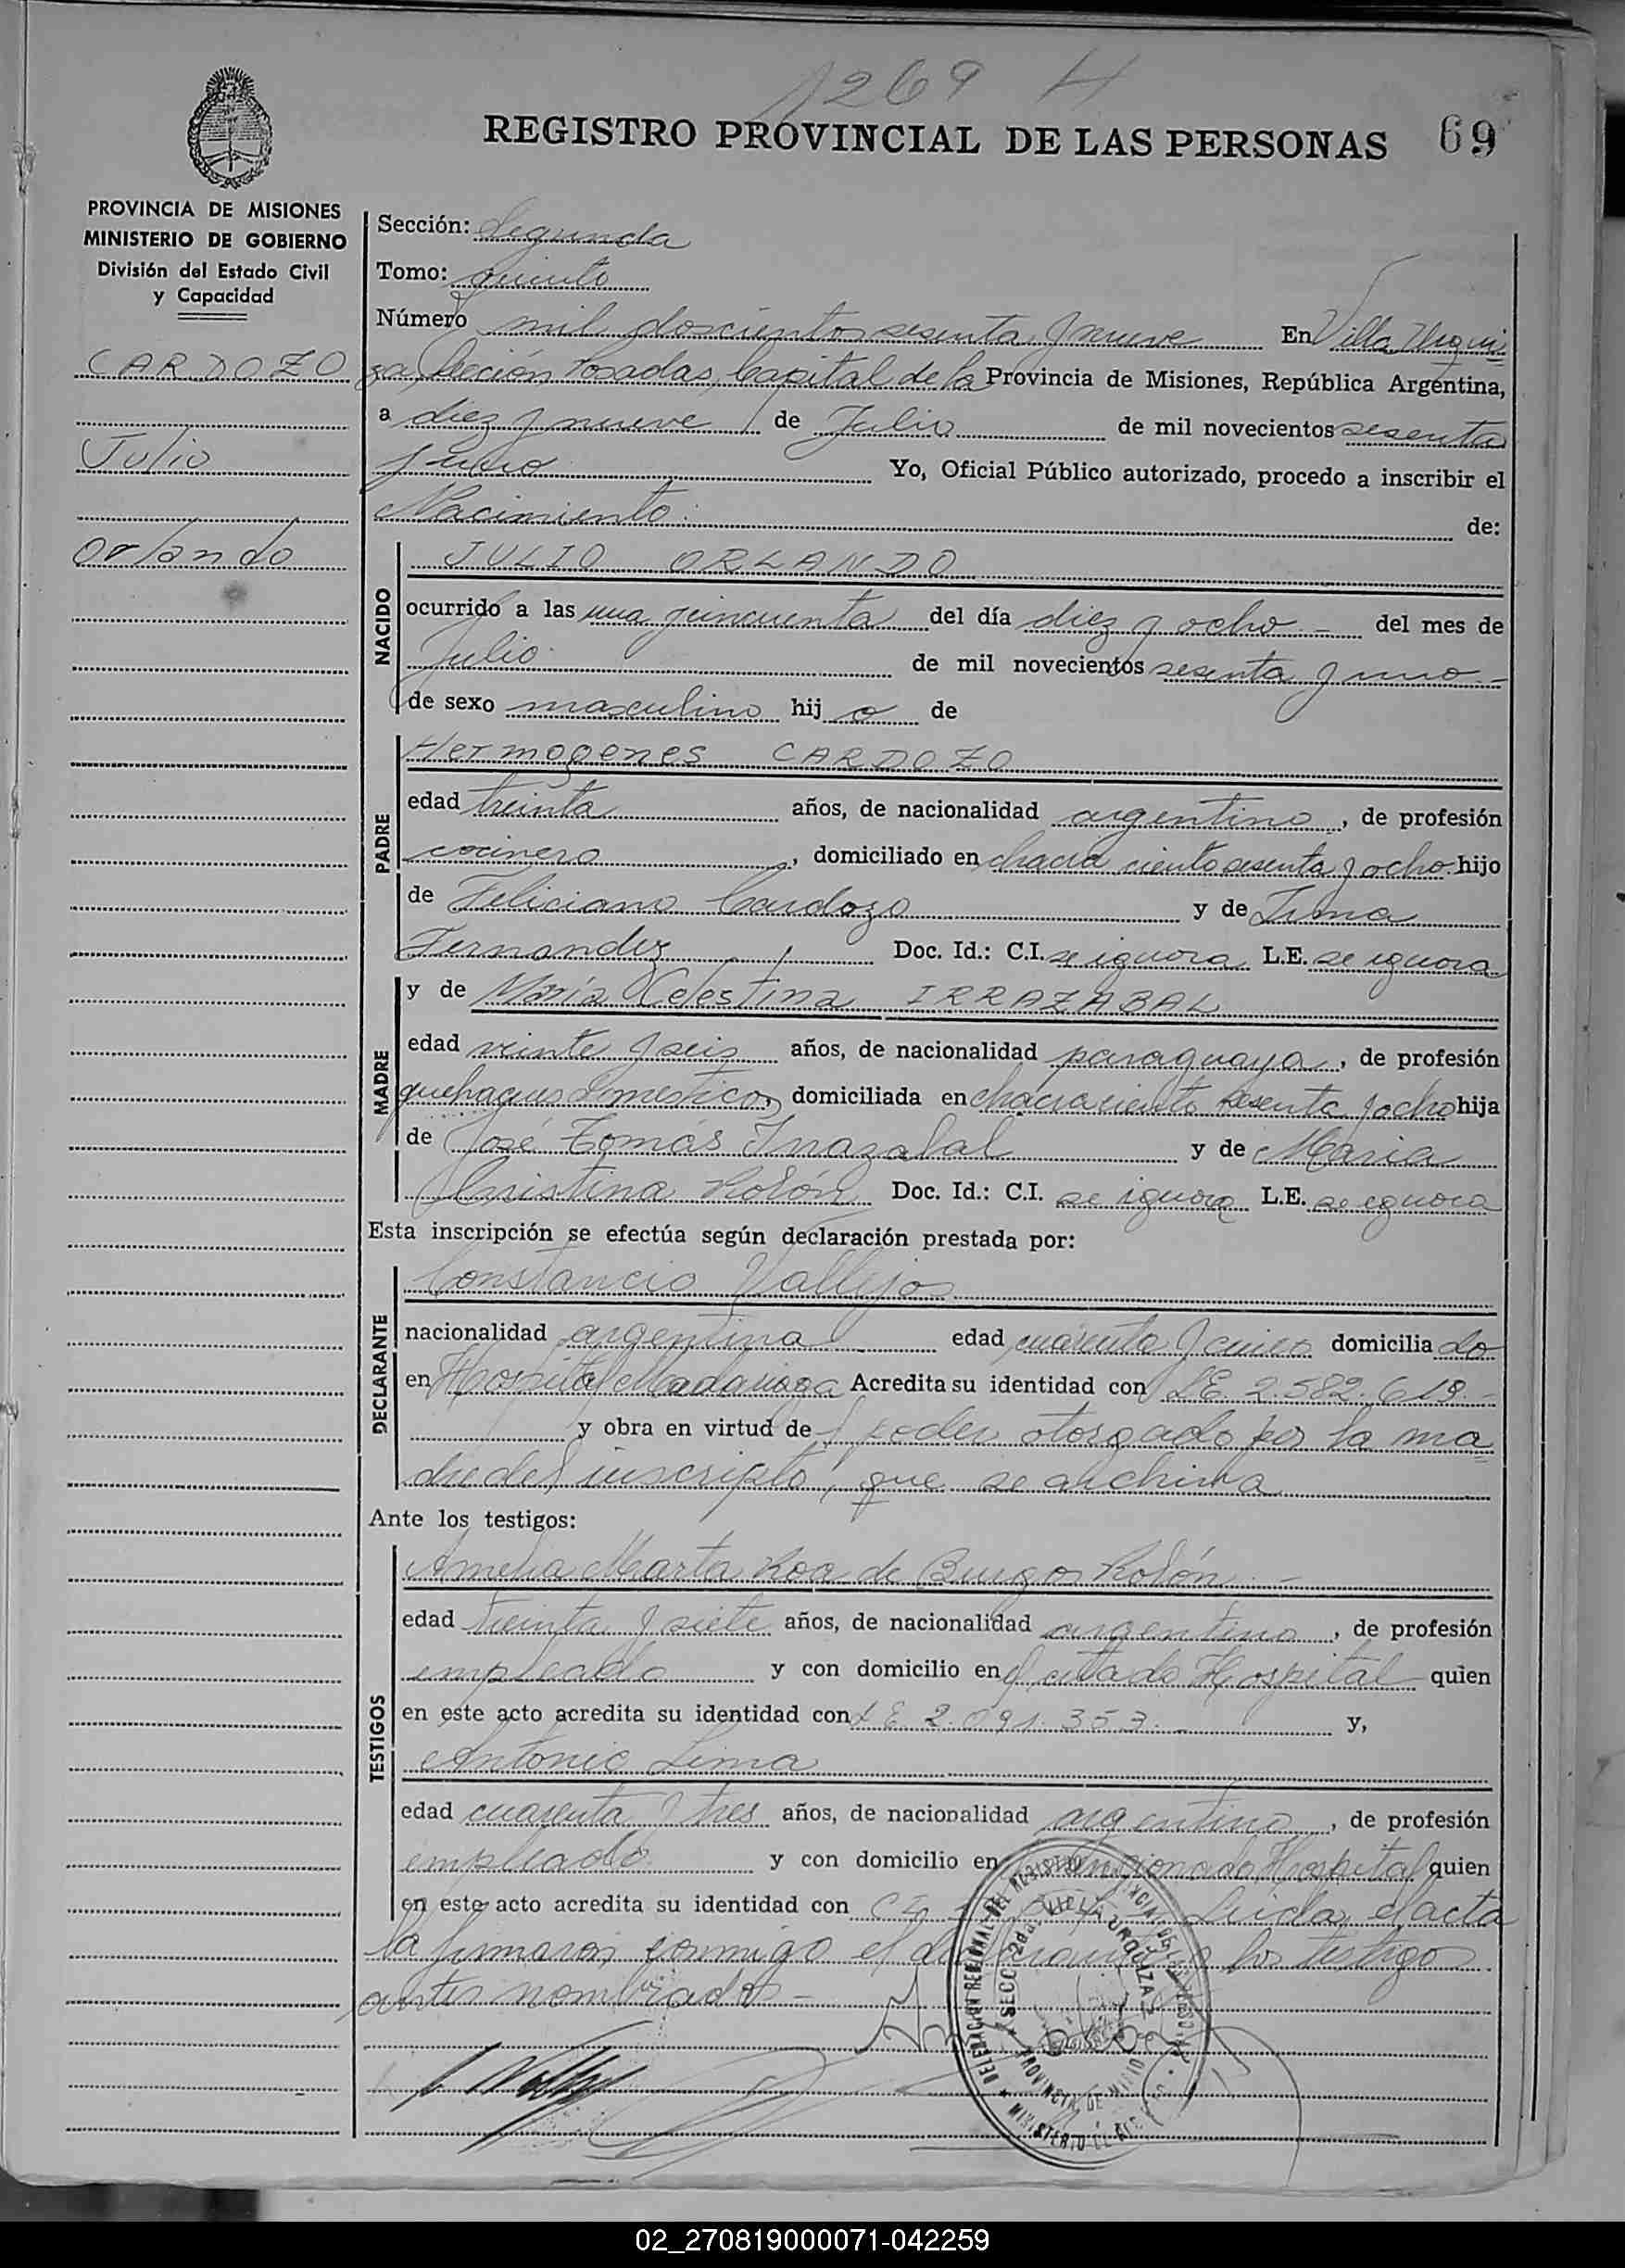 1269 H
REGISTRO PROVINCIAL DE LAS PERSONAS 69
PROVINCIA DE MISIONES
MINISTERIO DE GOBIERNO
División del Estado Civil
y Capacidad
CARDOZO
Julio
Orlando
Sección: Segunda
Tomo: quinto
Número mil doscientos sesenta y nueve En Villa Urqui=
za, Sección Posadas, Capital de la Provincia de Misiones, República Argentina,
a diez y nueve de Julio de mil novecientos sesenta
y uno Yo, Oficial Público autorizado, procedo a inscribir el
Nacimiento de:
NACIDO
JULIO ORLANDO
ocurrido a las una y cincuenta del día diez y ocho.- del mes de
Julio de mil novecientos sesenta y uno.-
de sexo masculino hij o de
PADRE
Hermogenes CARDOZO
edad treinta años, de nacionalidad argentino, de profesión
cocinero, domiciliado en chacra ciento sesenta y ocho hijo
de Feliciano Cardozo y de
Fernandez Doc. Id.: C.I. se ignora L.E. se ignora
MADRE
y de María Celestina IRRAZABAL
edad veinte y seis años, de nacionalidad paraguaya, de profesión
domiciliada en chacra ciento sesenta y ocho hija
de José Tomás Irrazabal y de Maria
Cristina Rolón Doc. Id.: C.I. se ignora L.E. se ignora
Esta inscripción se efectúa según declaración prestada por:
DECLARANTE
Constancio Vallejos
nacionalidad argentina edad cuarenta y domicilia do
en Hospital Madariaga Acredita su identidad con LE. 2.582.619.-
y obra en virtud de poder otorgado por la ma=
dre del inscripto, que se archiva
Ante los testigos:
TESTIGOS
Amelia Marta Roa de Burgos Rolón.-
edad treinta y siete años, de nacionalidad argentina, de profesión
empleada y con domicilio en el citado Hospital quien
en este acto acredita su identidad con LE 2.091.353.- y,
Antonio Lima
edad cuarenta y tres años, de nacionalidad argentino, de profesión
empleado y con domicilio en mencionado Hospital quien
en este acto acredita su identidad con CI Leida, el acta
la firmaron conmigo el declarante y los testigos
antes nombrados.-
DELEGACION REGIONAL DEL REGISTRO PROVINCIAL DE LAS PERSONAS
SECC 2da. VILLA URQUIZA
PROVINCIA DE MISIONES
MINISTERIO DE
02_270819000071-042259